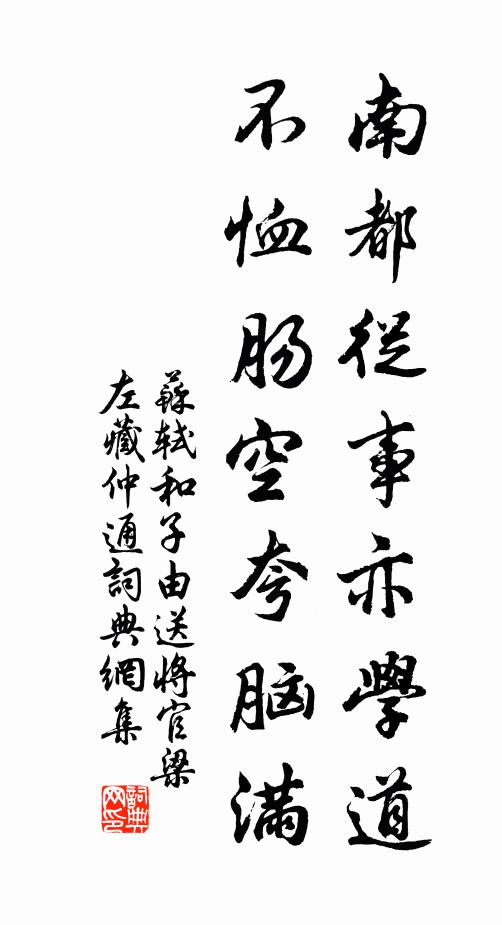 南都從事亦學道
不恤肠空夸脑滿
蘇軾和子由送將官梁
左藏仲通詞典網集
詞典
网印